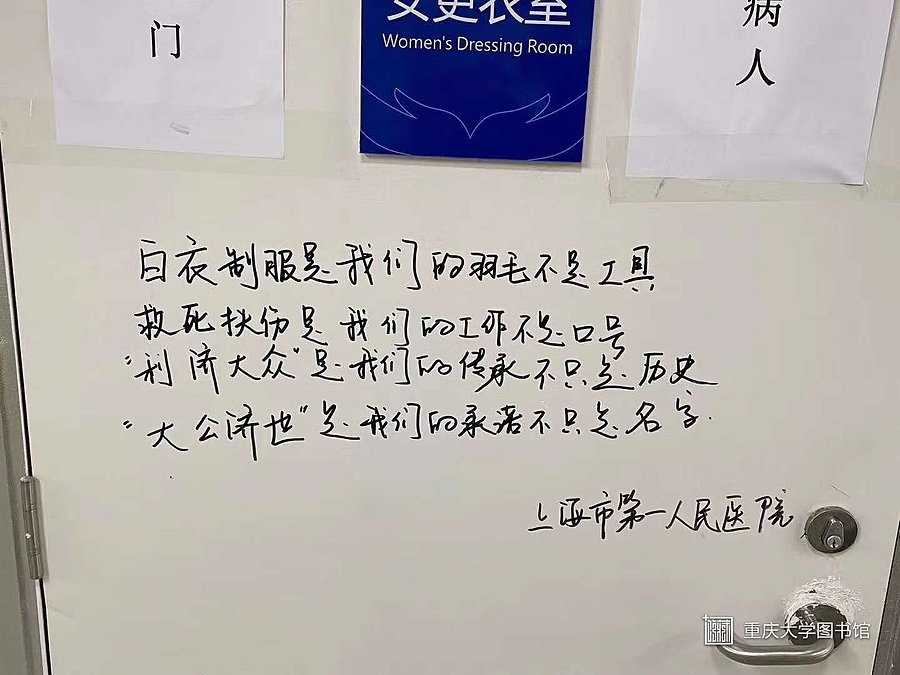 门
女更衣室
Women's Dressing Room
病
人
白衣制服是我们的羽毛不是工具
救死扶伤是我们的工作不是口号
"利济大众"是我们的传承不只是历史
"大公济世"是我们的承诺不只是名字.
上海市第一人民医院
重庆大学图书馆